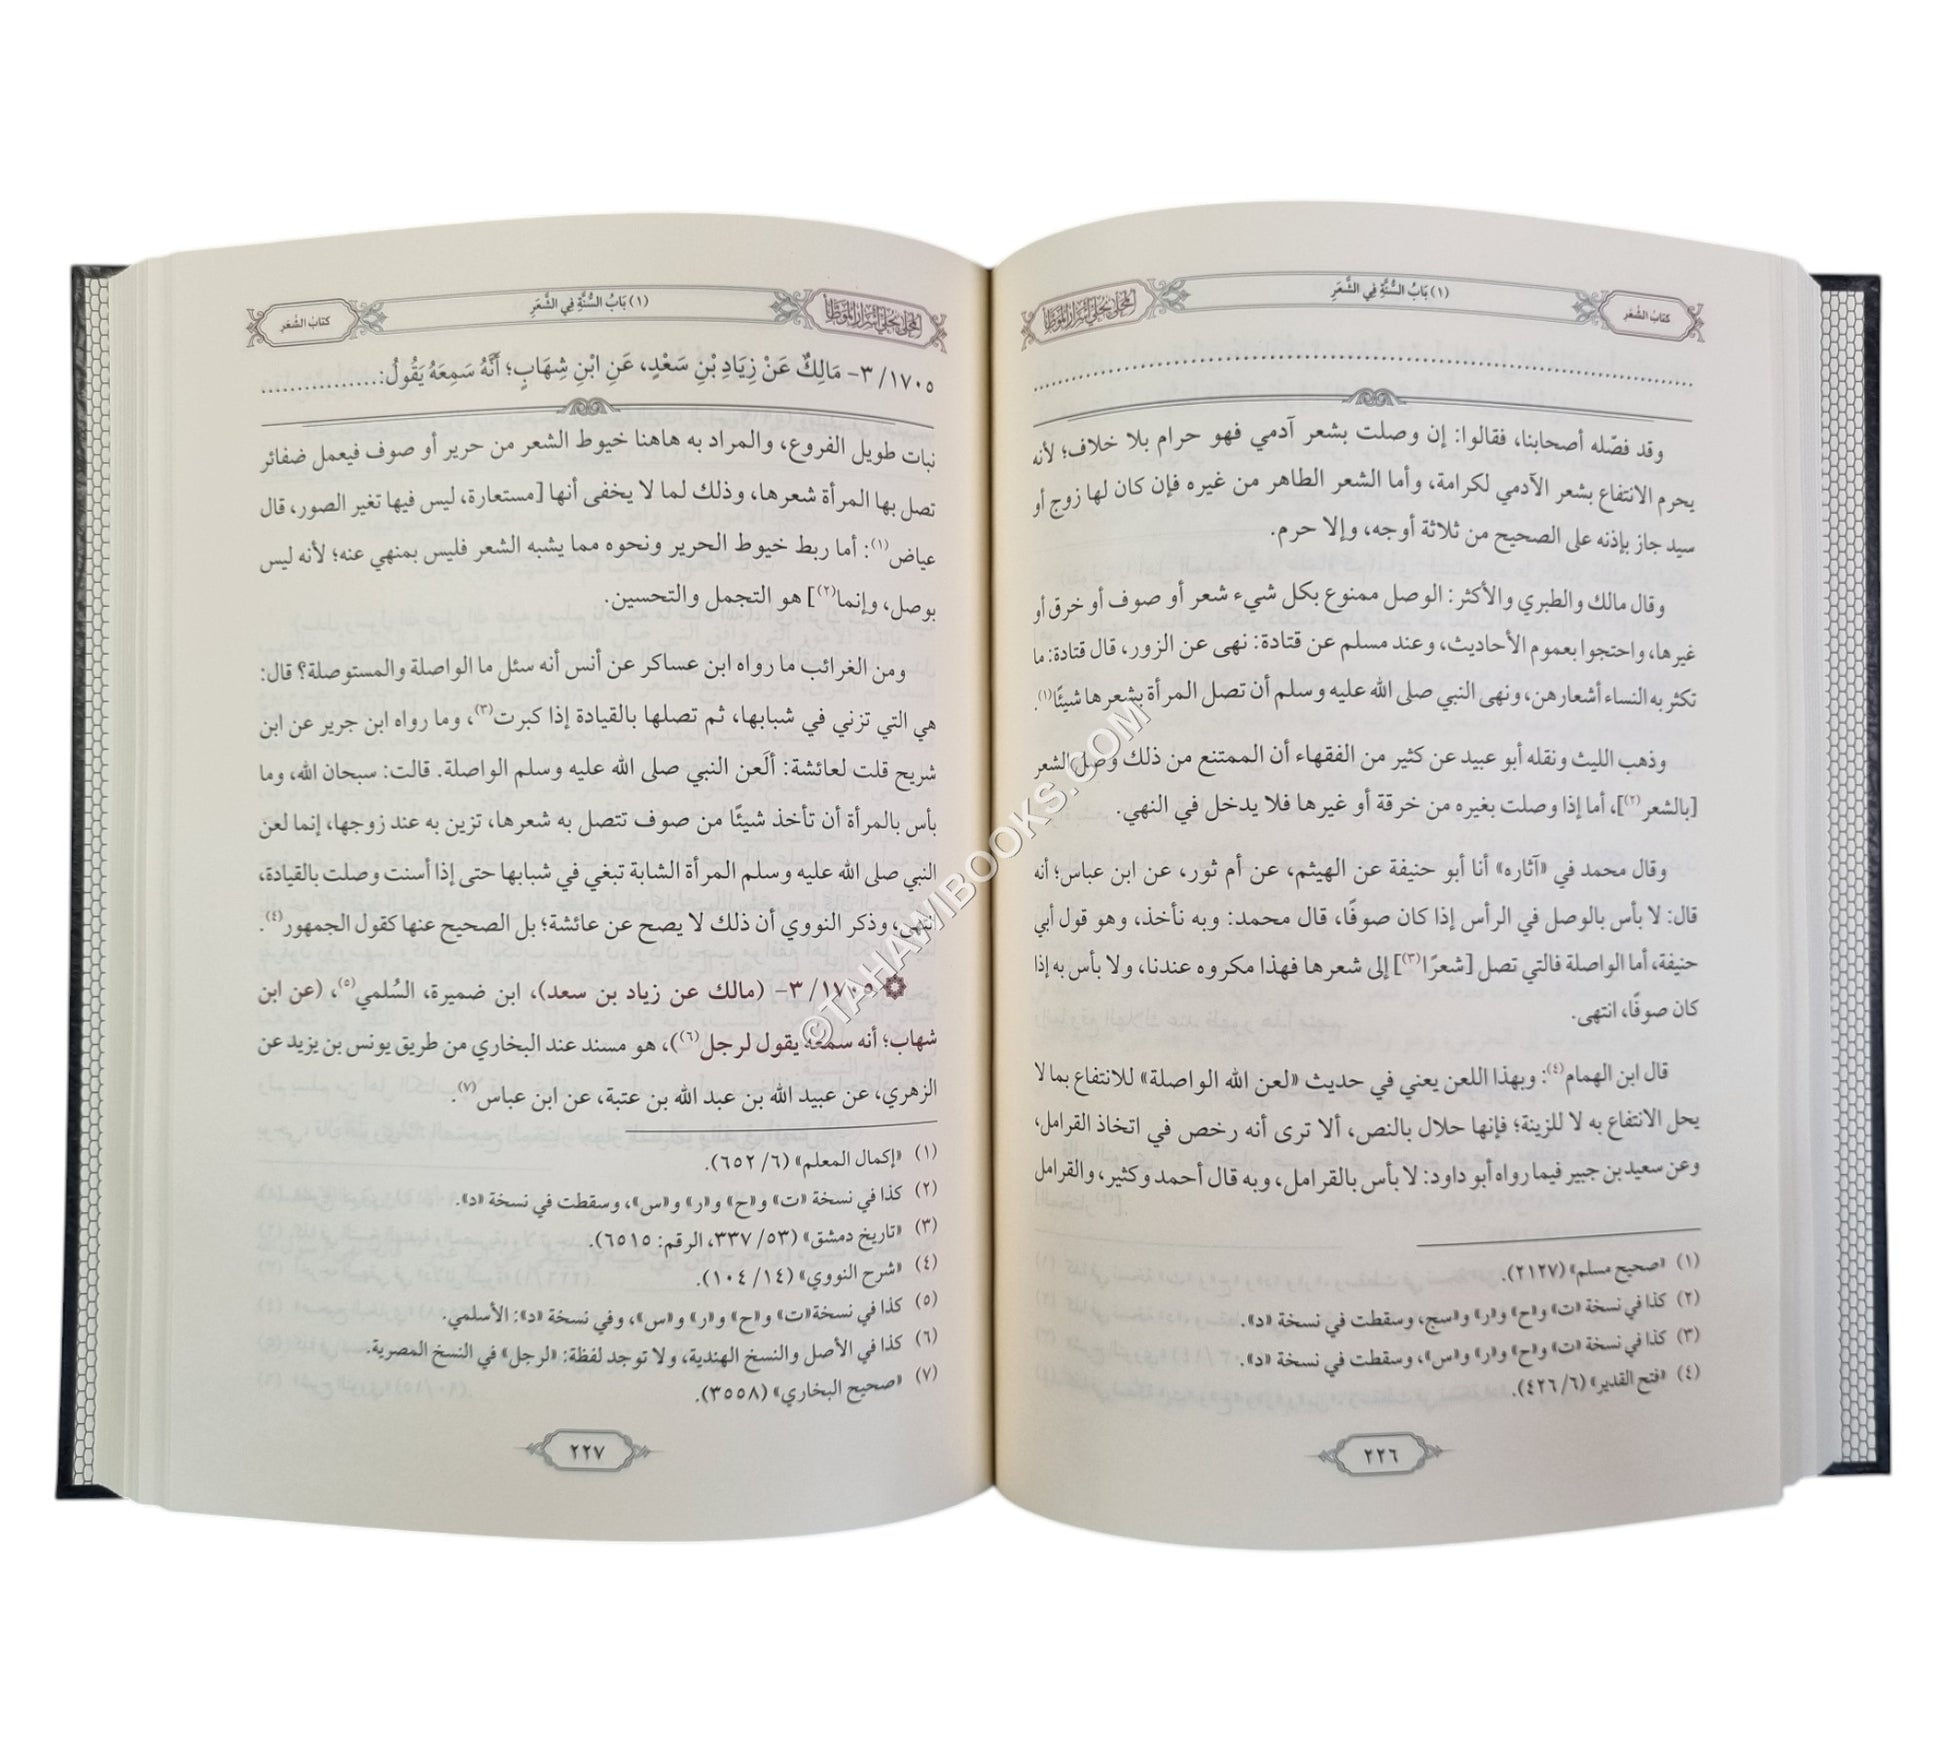 كتاب الشعر
(١) بَابُ السُّنَّةِ فِي الشَّعَرِ
المحلى بحلي أسرار الموطأ
وقد فصّله أصحابنا، فقالوا: إن وصلت بشعر آدمي فهو حرام بلا خلاف؛ لأنه
يحرم الانتفاع بشعر الآدمي لكرامة، وأما الشعر الطاهر من غيره فإن كان لها زوج أو
سيد جاز بإذنه على الصحيح من ثلاثة أوجه، وإلا حرم.
وقال مالك والطبري والأكثر: الوصل ممنوع بكل شيء شعر أو صوف أو خرق أو
غيرها، واحتجوا بعموم الأحاديث، وعند مسلم عن قتادة: نهى عن الزور، قال قتادة: ما
تكثر به النساء أشعارهن، ونهى النبي صلى الله عليه وسلم أن تصل المرأة بشعرها شيئًا(١).
وذهب الليث ونقله أبو عبيد عن كثير من الفقهاء أن الممتنع من ذلك وصل الشعر
[بالشعر(٢)]، أما إذا وصلت بغيره من خرقة أو غيرها فلا يدخل في النهي.
وقال محمد في «آثاره» أنا أبو حنيفة عن الهيثم، عن أم ثور، عن ابن عباس؛ أنه
قال: لا بأس بالوصل في الرأس إذا كان صوفًا، قال محمد: وبه نأخذ، وهو قول أبي
حنيفة، أما الواصلة فالتي تصل [شعرًا(٣)] إلى شعرها فهذا مكروه عندنا، ولا بأس به إذا
كان صوفًا، انتهى.
قال ابن الهمام(٤): وبهذا اللعن يعني في حديث «لعن الله الواصلة» للانتفاع بما لا
يحل الانتفاع به لا للزينة؛ فإنها حلال بالنص، ألا ترى أنه رخص في اتخاذ القرامل،
وعن سعيد بن جبير فيما رواه أبو داود: لا بأس بالقرامل، وبه قال أحمد وكثير، والقرامل
(١) «صحيح مسلم» (٢١٢٧).
(٢) كذا في نسخة «ت» و«ح» و«ر» و«سج، وسقطت في نسخة «د».
(٣) كذا في نسخة «ت» و«ح» و«ر» و«س»، وسقطت في نسخة «د».
(٤) «فتح القدير» (٦/ ٤٢٦).
٢٢٦
المحلى بحلي أسرار الموطأ
(١) بَابُ السُّنَّةِ فِي الشَّعَرِ
كتاب الشعر
١٧٠٥/ ٣- مَالِكٌ عَنْ زِيَادِ بْنِ سَعْدٍ، عَنِ ابْنِ شِهَابٍ؛ أَنَّهُ سَمِعَهُ يَقُولُ:................
نبات طويل الفروع، والمراد به هاهنا خيوط الشعر من حرير أو صوف فيعمل ضفائر
تصل بها المرأة شعرها، وذلك لما لا يخفى أنها [مستعارة، ليس فيها تغير الصور، قال
عياض(١): أما ربط خيوط الحرير ونحوه مما يشبه الشعر فليس بمنهي عنه؛ لأنه ليس
بوصل، وإنما(٢)] هو التجمل والتحسين.
ومن الغرائب ما رواه ابن عساكر عن أنس أنه سئل ما الواصلة والمستوصلة؟ قال:
هي التي تزني في شبابها، ثم تصلها بالقيادة إذا كبرت(٣)، وما رواه ابن جرير عن ابن
شريح قلت لعائشة: ألَعن النبي صلى الله عليه وسلم الواصلة. قالت: سبحان الله، وما
بأس بالمرأة أن تأخذ شيئًا من صوف تتصل به شعرها، تزين به عند زوجها، إنما لعن
النبي صلى الله عليه وسلم المرأة الشابة تبغي في شبابها حتى إذا أسنت وصلت بالقيادة،
انتهى، وذكر النووي أن ذلك لا يصح عن عائشة؛ بل الصحيح عنها كقول الجمهور(٤).
١٧٠٥/ ٣- (مالك عن زياد بن سعد)، ابن ضميرة، السُلمي(٥)، (عن ابن
شهاب؛ أنه سمعه يقول لرجل(٦))، هو مسند عند البخاري من طريق يونس بن يزيد عن
الزهري، عن عبيد الله بن عبد الله بن عتبة، عن ابن عباس(٧).
(١) «إكمال المعلم» (٦/ ٦٥٢).
(٢) كذا في نسخة «ت» و«ح» و«ر» و«س»، وسقطت في نسخة «د».
(٣) «تاريخ دمشق» (٥٣/ ٣٣٧، الرقم: ٦٥١٥).
(٤) «شرح النووي» (١٤/ ١٠٤).
(٥) كذا في نسخة«ت» و«ح» و«ر» و«س»، وفي نسخة «د»: الأسلمي.
(٦) كذا في الأصل والنسخ الهندية، ولا توجد لفظة: «لرجل» في النسخ المصرية.
(٧) «صحيح البخاري» (٣٥٥٨).
٢٢٧
©TAHAWIBOOKS.COM